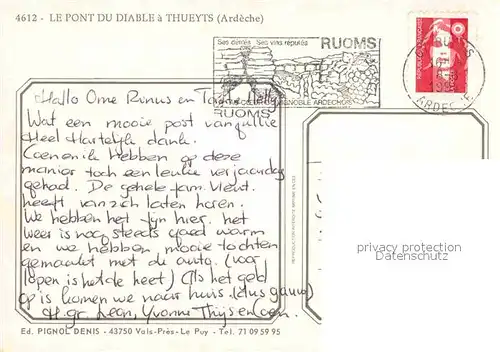 4612 - LE PONT DU DIABLE à THUEYTS (Ardèche)
Ses défilés Ses vins réputés
RUOMS
VIGNOBLE ARDECHOIS
RUOMS
RUOMS
ARDECHE
Hallo Ome Rinus en Tante
Wat een mooie post van jullie
Heel Hartelijk dank.
Coen en ik hebben op deze
manier toch een leuke verjaardag
gehad. De gehele fam. Vient.
heeft van zich laten horen.
We hebben het fijn hier. het
weer is nog steeds goed warm
en we hebben mooie tochten
gemaakt met de auto. (voor
lopen is het de heet) (Als het geld
op is komen we naar huis. (dus gauw)
H. gr. Leon, Yvonne Thijs en Coen.
REPRODUCTION INTERDITE
privacy protection
Datenschutz
Ed. PIGNOL DENIS - 43750 Vals-Près-Le Puy - Tel. 71 09 59 95